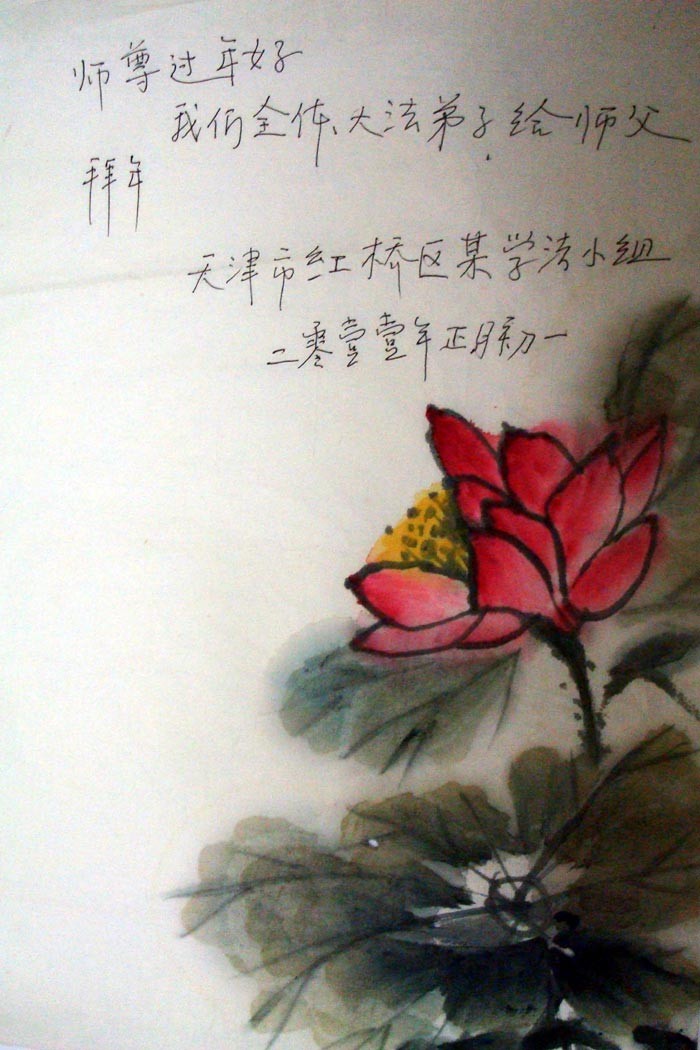 师尊过年好
我们全体大法弟子给师父
拜年
天津市红桥区某学法小组
二零壹壹年正月初一